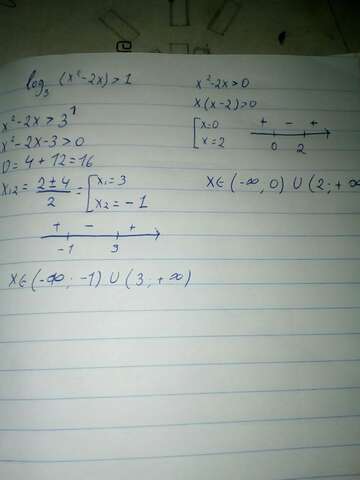 log₃ (x²-2x) > 1
x²-2x > 3¹
x²-2x-3 > 0
D = 4 + 12 = 16
x₁,₂ = (2 ± 4)/2 = [ x₁ = 3
x₂ = -1
+ - +
-1 3
x ∈ (-∞; -1) ∪ (3; +∞)
x²-2x > 0
x(x-2) > 0
[ x = 0
x = 2
+ - +
0 2
x ∈ (-∞, 0) ∪ (2; +∞